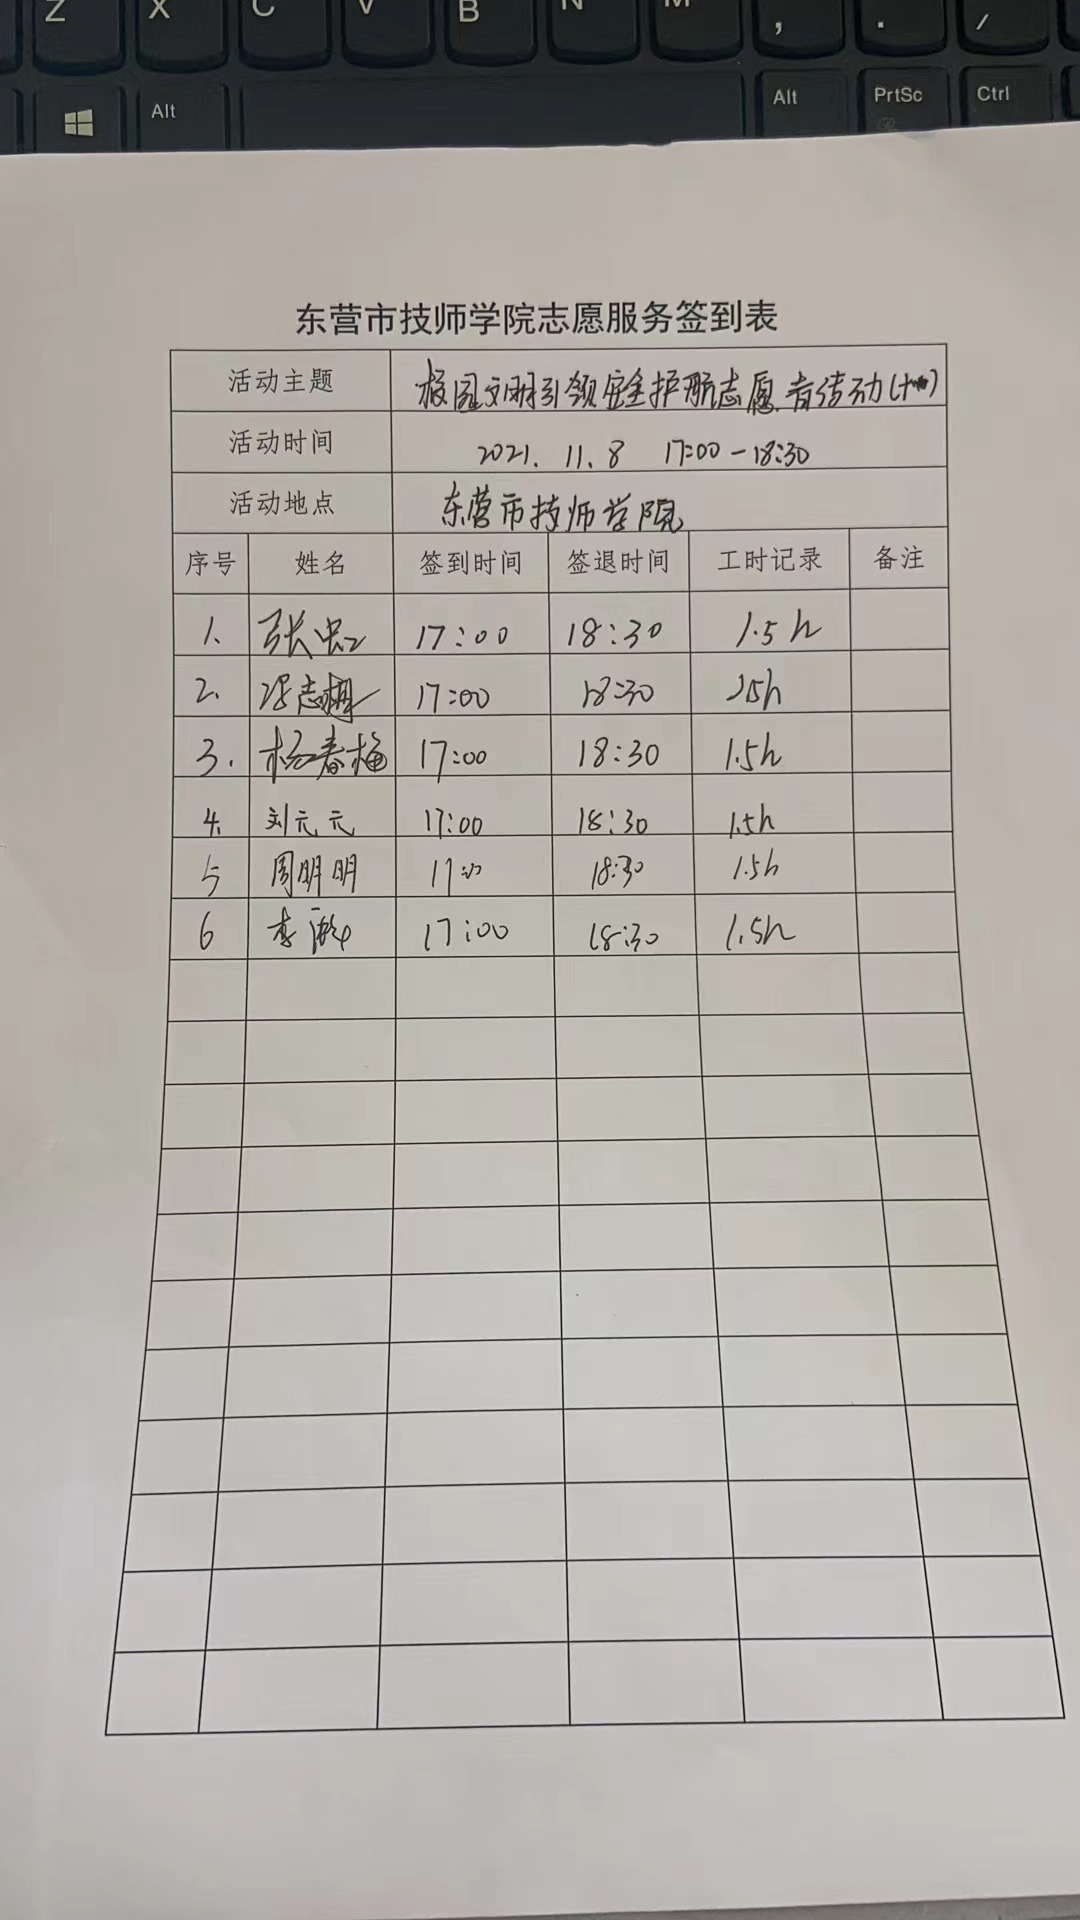 Z X C V B N M , . /
Alt Alt PrtSc Ctrl
东营市技师学院志愿服务签到表
活动主题 校园文明引领安全护航志愿者活动
活动时间 2021. 11. 8 17:00-18:30
活动地点 东营市技师学院
序号 姓名 签到时间 签退时间 工时记录 备注
1. 张虹 17:00 18:30 1.5h
2. 志 17:00 18:30 1.5h
3. 杨春梅 17:00 18:30 1.5h
4. 刘元元 17:00 18:30 1.5h
5 周明明 17:00 18:30 1.5h
6 李 17:00 18:30 1.5h